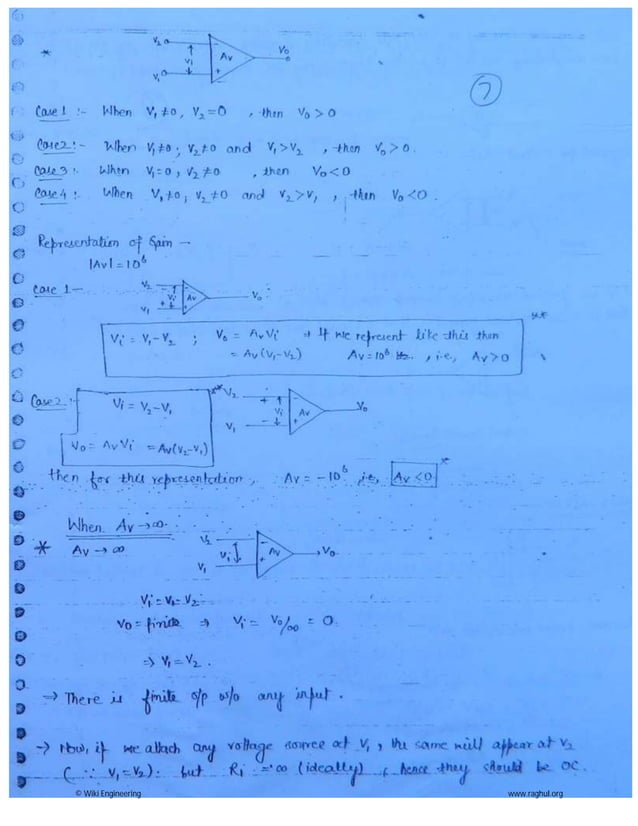 *
V₂
V₁
Vi
-
+
Av
Vo
7
Case 1 :- When V₁≠0, V₂=0 , then Vo > 0
Case2:- When V₁≠0; V₂≠0 and V₁>V₂ , then Vo>0.
Case3 :- When V₁=0, V₂≠0 , then Vo<0
Case4 :- When V₁≠0; V₂≠0 and V₂>V₁, then Vo<0.
Representation of Gain —
|Av| = 10⁶
Case 1 — V₂ V₁ Vi Av Vo
Vi = V₁-V₂ ; Vo = AvVi ⇒ If we represent like this then
= Av(V₁-V₂) Av=10⁶ , i.e., Av>0
Case2 :- Vi = V₂-V₁
Vo = AvVi = Av(V₂-V₁)
V₂ V₁ + - Vi Av Vo
then for this representation, Av = -10⁶ i.e, Av<0
When Av→∞
* Av→∞
V₂ V₁ Vi - + Av Vo
Vi = V₁-V₂
Vo = finite ⇒ Vi = Vo/∞ = 0
⇒ V₁=V₂.
→ There is finite o/p w/o any input.
→ Now, if we attach any voltage source at V₁, the same will appear at V₂
(∵ V₁=V₂). but Ri = ∞ (ideally), hence they should be OC.
© Wiki Engineering
www.raghul.org